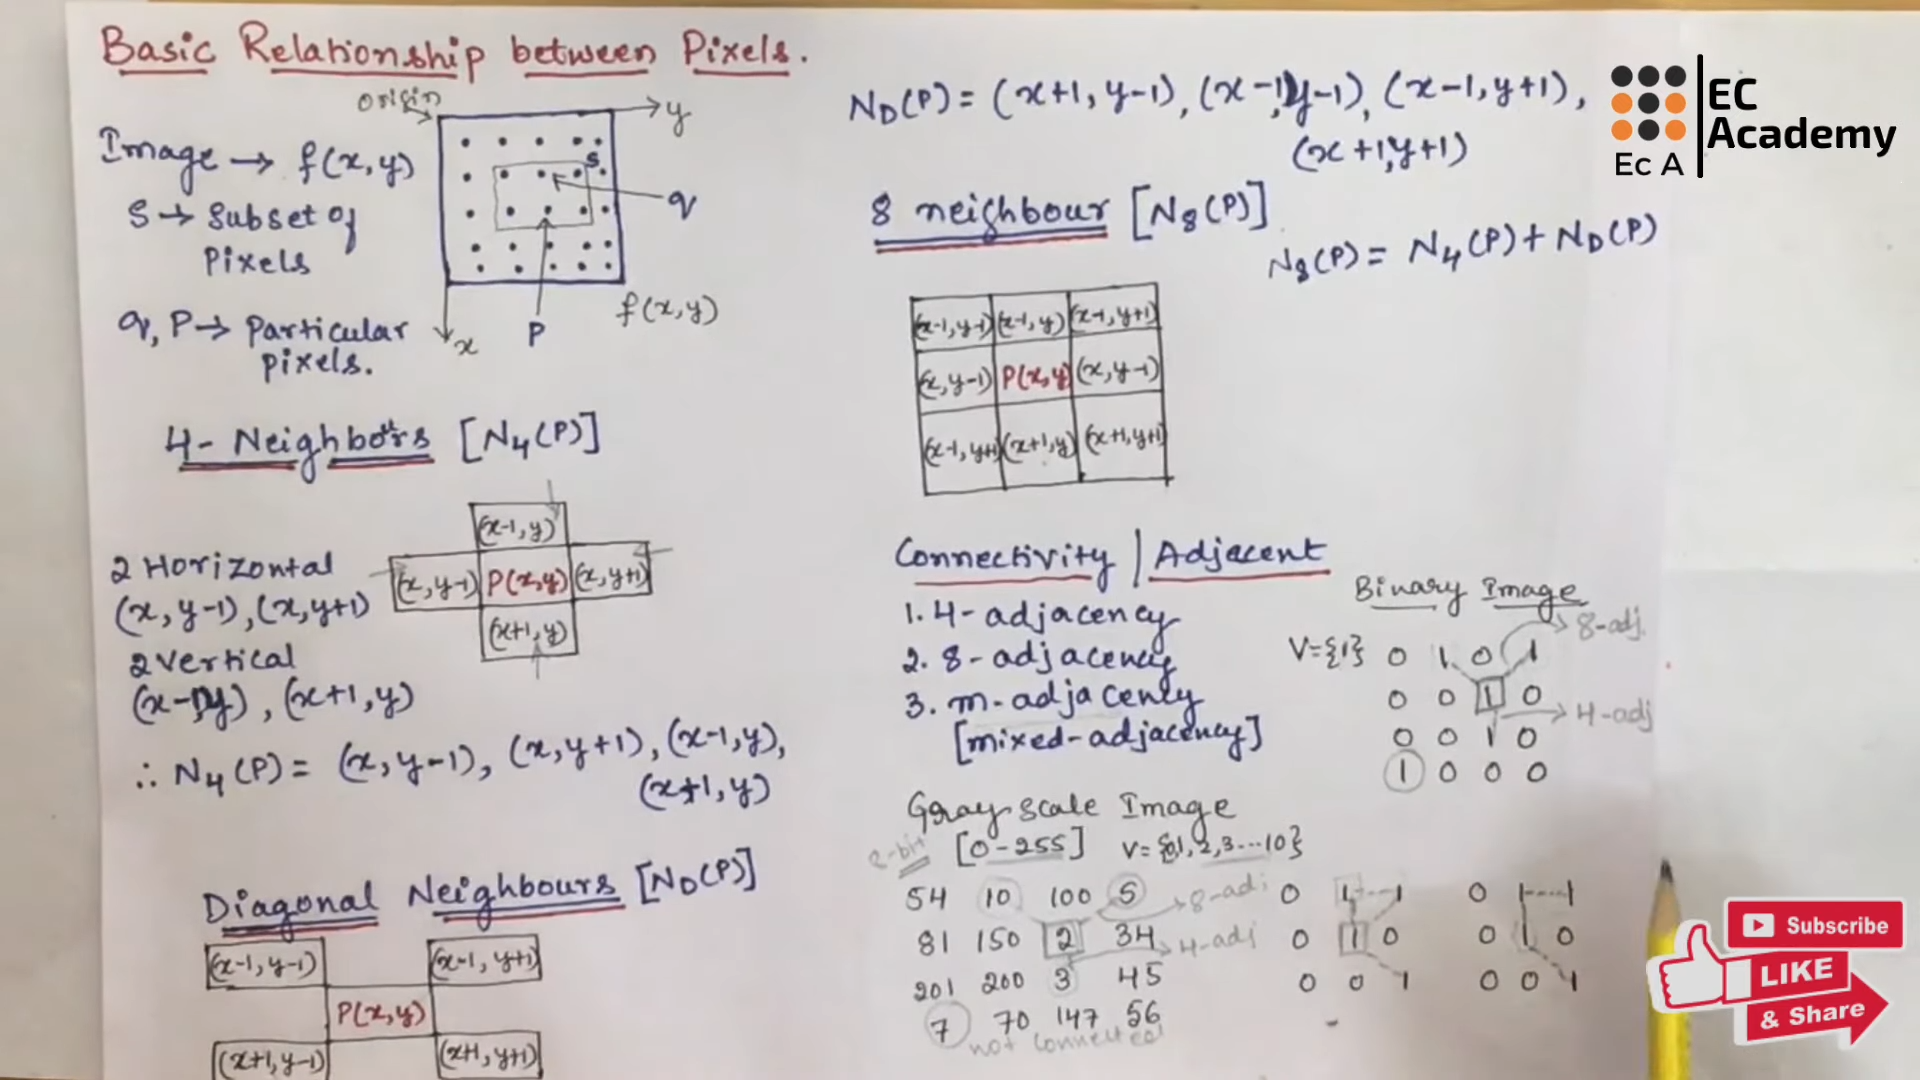 Basic Relationship between Pixels.
origin
y
Image → f(x,y)
S
S → Subset of
Pixels
q
q, P → Particular
pixels.
x
P
f(x,y)
4-Neighbors [N4(P)]
(x-1,y)
(x,y-1) P(x,y) (x,y+1)
(x+1,y)
2 Horizontal
(x,y-1),(x,y+1)
2 Vertical
(x-1,y), (x+1,y)
∴ N4(P) = (x,y-1), (x,y+1), (x-1,y),
(x+1,y)
Diagonal Neighbours [ND(P)]
(x-1,y-1) (x-1,y+1)
P(x,y)
(x+1,y-1) (x+1,y+1)
ND(P) = (x+1,y-1), (x-1,y-1), (x-1,y+1),
(x+1,y+1)
8 neighbour [N8(P)]
N8(P) = N4(P) + ND(P)
(x-1,y-1) (x-1,y) (x-1,y+1)
(x,y-1) P(x,y) (x,y-1)
(x-1,y+1) (x+1,y) (x+1,y+1)
Connectivity | Adjacent
1. 4-adjacency
2. 8-adjacency
3. m-adjacency
[mixed-adjacency]
Binary Image
8-adj.
V={1} 0 1 0 1
0 0 1 0
4-adj
0 0 1 0
1 0 0 0
Gray scale Image
8-bit [0-255] V={0,1,2,3...10}
54 10 100 5
8-adj
81 150 2 34
4-adj
201 200 3 45
7 70 147 56
not connected
0 1 1
0 1 0
0 0 1
0 1 1
0 1 0
0 0 1
EC
Academy
Ec A
Subscribe
LIKE
& Share